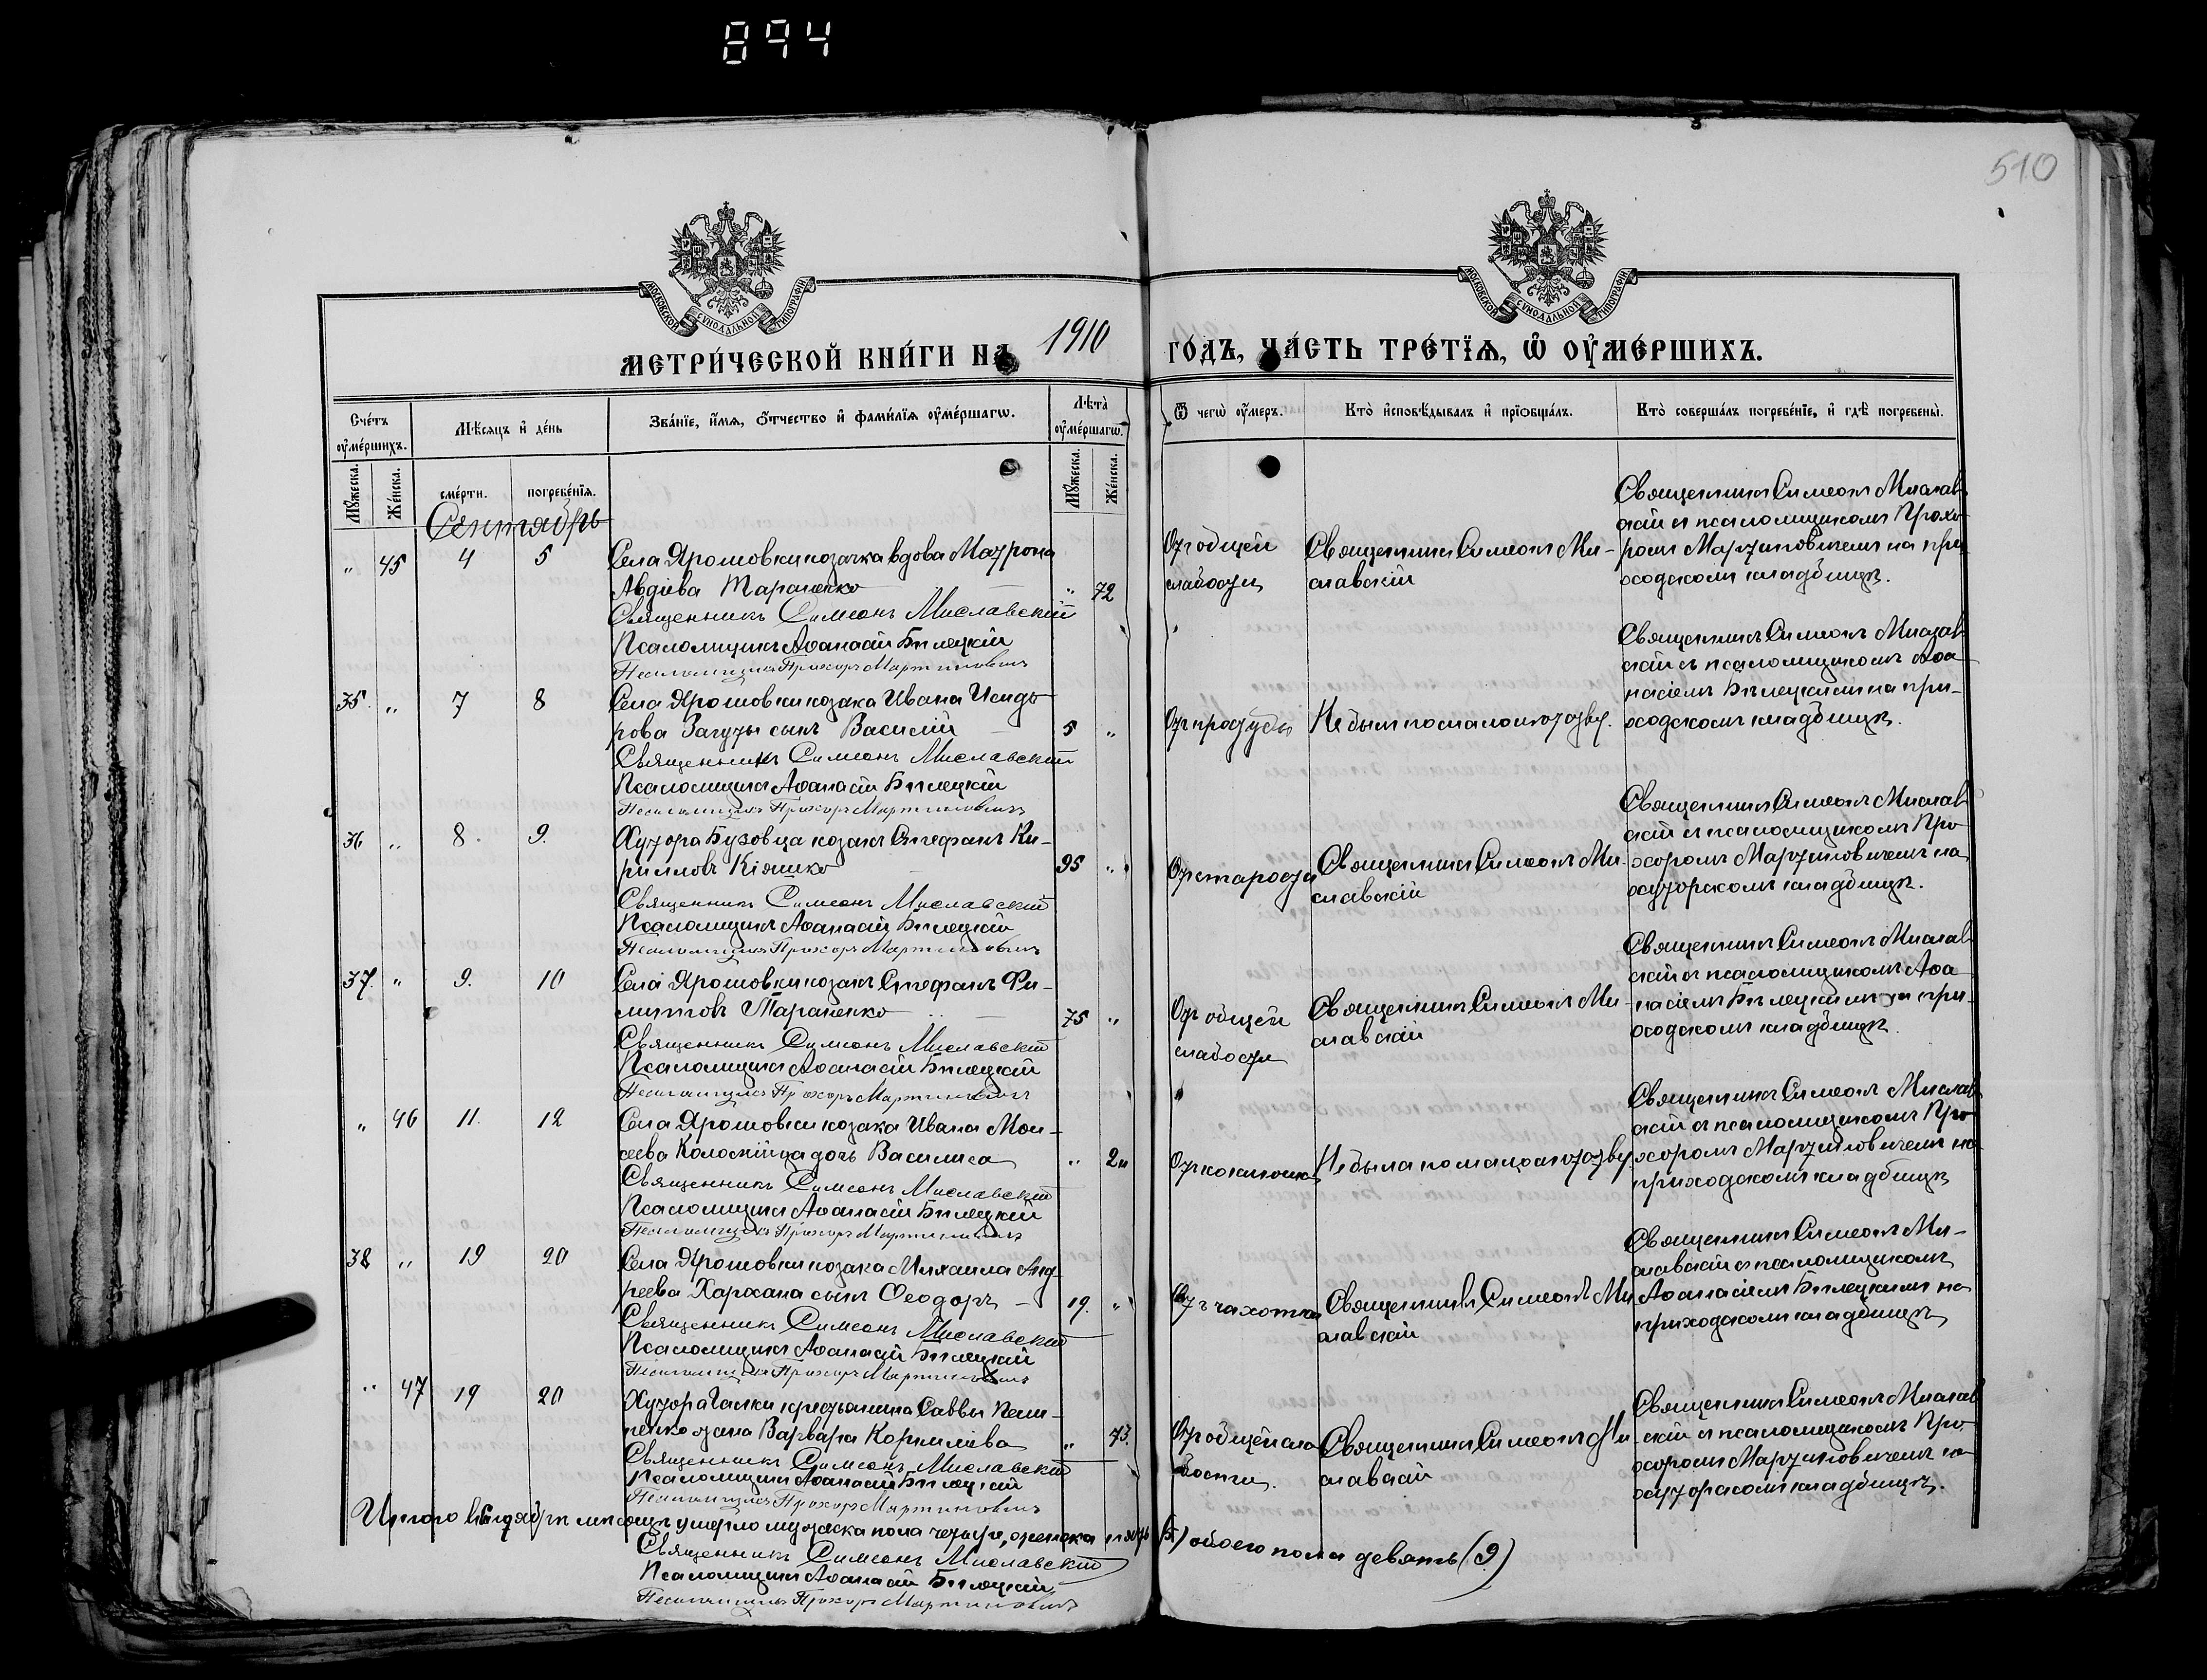 894
510
МОСКОВСКОЙ СУНОДАЛЬНОЙ ТИПОГРАФІИ
МОСКОВСКОЙ СУНОДАЛЬНОЙ ТИПОГРАФІИ
МЕТРИ́ЧЕСКОЙ КНИ́ГИ НА 1910 ГО́ДЪ, ЧА́СТЬ ТРЕ́ТЇѦ, Ѡ҆ ОУ҆МЕ́РШИХЪ.
Сче́тъ оу҆ме́ршихъ.
Мꙋ́жеска.
Же́нска.
Мѣ́сяцъ и҆ де́нь
сме́рти.
погребе́нїѧ.
Зва́нїе, и҆́мѧ, ѻ҆́тчество и҆ фами́лїѧ оу҆ме́ршагѡ.
Лѣ́та оу҆ме́ршагѡ.
Мꙋ́жеска.
Же́нска.
Ѿ чегѡ̀ оу҆́меръ.
Кто̀ и҆сповѣ́дывалъ и҆ прїѡбща́лъ.
Кто̀ соверша́лъ погребе́нїе, и҆ гдѣ̀ погребены̀.
Сентябрь
" 45 4 5
Села Ярошовки козачка вдова Матрона
Авдіева Тараненко " 72
Священникъ Симеонъ Миславский
Псаломщикъ Аѳанасій Билецкій
Псаломщикъ Прохоръ Мартиновичъ
Отъ общей
слабости
Священникъ Симеонъ Ми-
славскій
Священникъ Симеонъ Мислав
скій съ псаломщикомъ Прохо-
ромъ Мартиновичемъ на при
ходскомъ кладбищѣ.
35. " 7 8
Села Ярошовки козака Ивана Исидо
рова Загуты сынъ Василій 5 "
Священникъ Симеонъ Миславский
Псаломщикъ Аѳанасій Билецкій
Псаломщикъ Прохоръ Мартиновичъ
Отъ простуды
Не былъ по малолѣтству.
Священникъ Симеонъ Мислав
скій съ псаломщикомъ Аѳа
насіемъ Билецкимъ на при-
ходскомъ кладбищѣ.
36 " 8. 9.
Хутора Бузовца козакъ Стефанъ Ки-
рилловъ Кіяшко 95 "
Священникъ Симеонъ Миславский
Псаломщикъ Аѳанасій Билецкій
Псаломщикъ Прохоръ Мартиновичъ
Отъ старости
Священникъ Симеонъ Ми-
славскій
Священникъ Симеонъ Мислав
скій съ псаломщикомъ Про
хоромъ Мартиновичемъ на
хуторскомъ кладбищѣ.
37. " 9. 10
Села Ярошовки козакъ Стефанъ Фи-
липовъ Тараненко 75 "
Священникъ Симеонъ Миславский
Псаломщикъ Аѳанасій Билецкій
Псаломщикъ Прохоръ Мартиновичъ
Отъ общей
слабости
Священникъ Симеонъ Ми-
славскій
Священникъ Симеонъ Мислав
скій съ псаломщикомъ Аѳа
насіемъ Билецкимъ на при-
ходскомъ кладбищѣ.
" 46 11. 12
Села Ярошовки козака Ивана Мои-
сеева дочь Василиса "
Священникъ Симеонъ Миславский
Псаломщикъ Аѳанасій Билецкій
Псаломщикъ Прохоръ Мартиновичъ
Не была по малолѣтству
Священникъ Симеонъ Мислав
скій съ псаломщикомъ Про
хоромъ Мартиновичемъ на
приходскомъ кладбищѣ
38 " 19 20
Села Ярошовки козака Михаила Анд-
реева Хархана сынъ Ѳеодоръ 19. "
Священникъ Симеонъ Миславский
Псаломщикъ Аѳанасій Билецкій
Псаломщикъ Прохоръ Мартиновичъ
Отъ чахотки
Священникъ Симеонъ Ми
славскій
Священникъ Симеонъ Ми-
славскій съ псаломщикомъ
Аѳанасіемъ Билецкимъ на
приходскомъ кладбищѣ
" 47 19 20
Хутора Галки крестьянина Саввы
жена Варвара Корнилiева " 73.
Священникъ Симеонъ Миславский
Псаломщикъ Аѳанасій Билецкій
Псаломщикъ Прохоръ Мартиновичъ
Отъ общей сла
бости
Священникъ Симеонъ Ми
славскій
Священникъ Симеонъ Мислав
скій съ псаломщикомъ Про
хоромъ Мартиновичемъ на
хуторскомъ кладбищѣ.
Итого въ сентябрѣ мѣсяцѣ умерло мужеска пола четыре, женска пять (5) обоего пола девять (9)
Священникъ Симеонъ Миславский
Псаломщикъ Аѳанасій Билецкій
Псаломщикъ Прохоръ Мартиновичъ